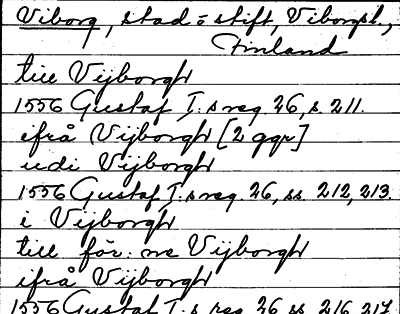 Viborg, stad o stift, Viborgsl.,
Finland
till Vijborgh
1556 Gustaf I:s reg. 26, s. 211.
ifrå Vijborgh [2 ggr]
udi Vijborgh
1556 Gustaf I:s reg. 26, ss. 212, 213.
i Vijborgh
till för:ne Vijborgh
ifrå Vijborgh
1556 Gustaf I:s reg. 26 ss. 216, 217